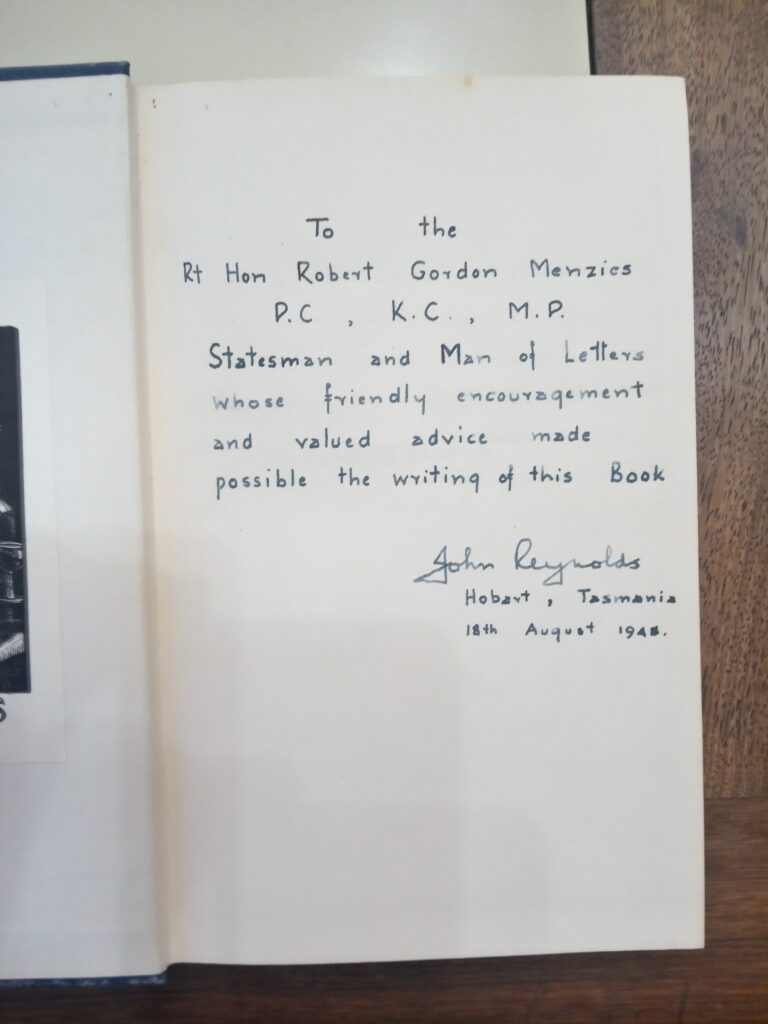 To the
Rt Hon Robert Gordon Menzies
P.C , K.C., M.P.
Statesman and Man of Letters
whose friendly encouragement
and valued advice made
possible the writing of this Book
John Reynolds
Hobart , Tasmania
18th August 1948.
S